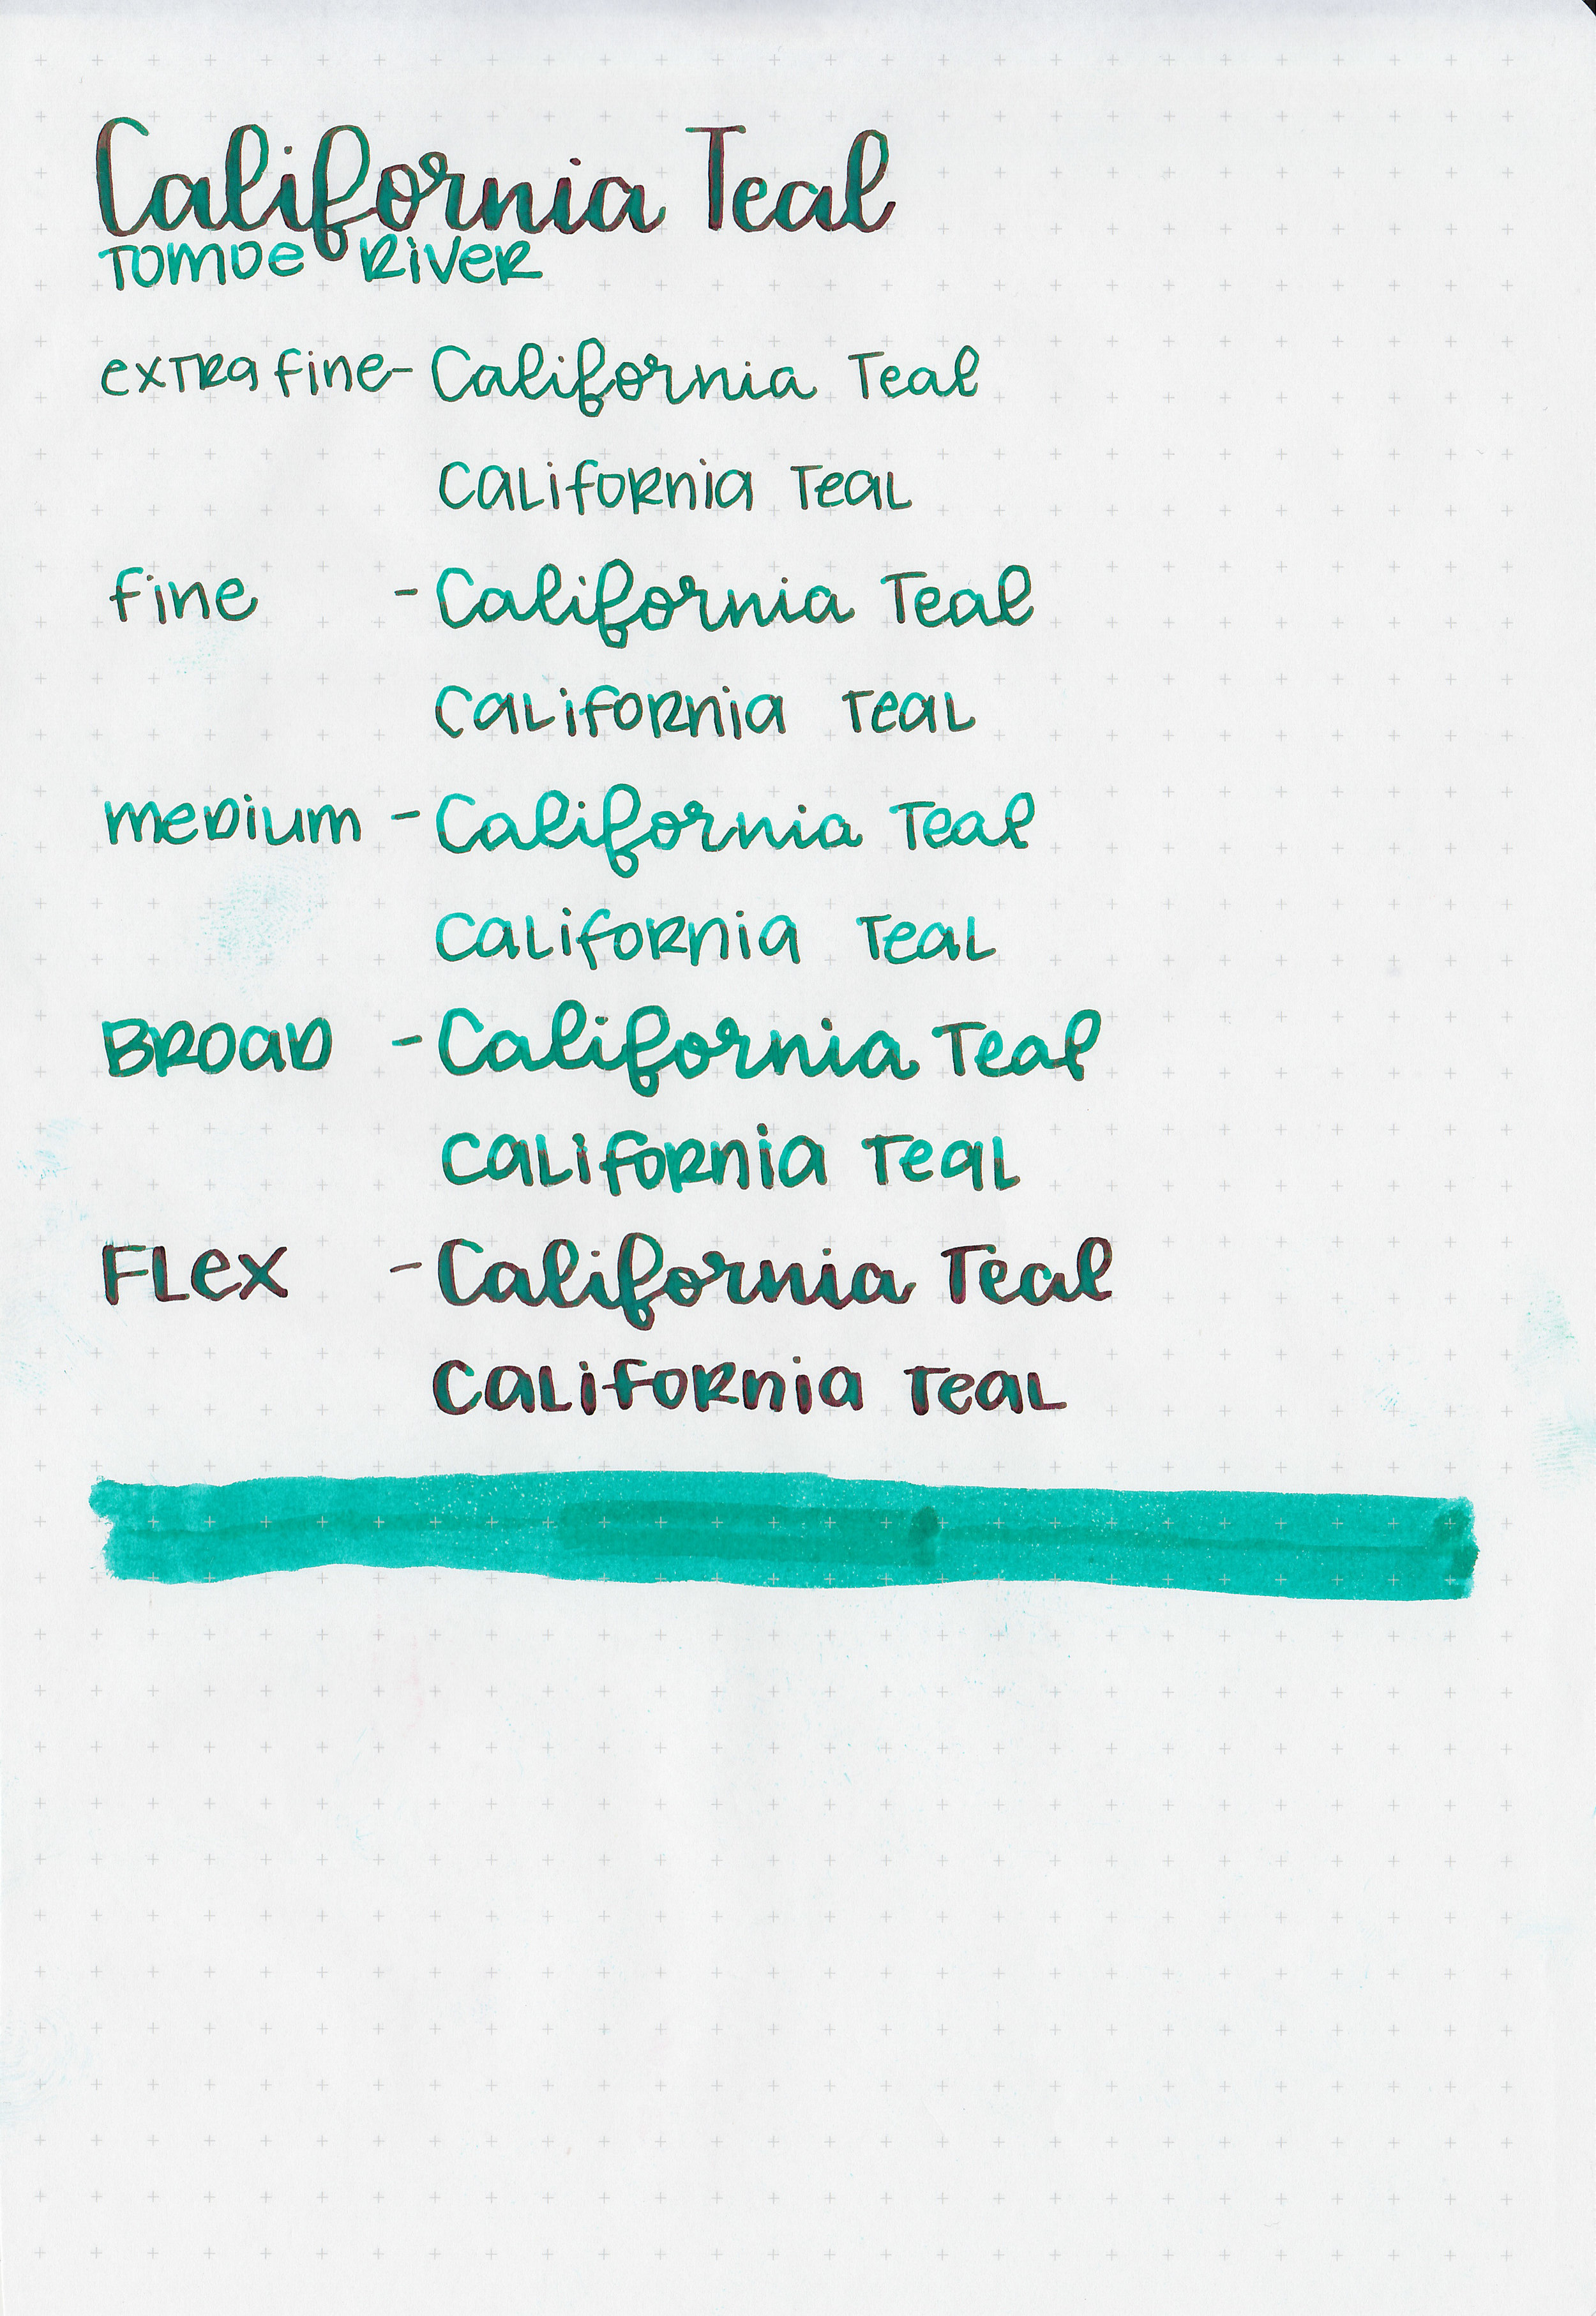 California Teal
TOMOE RIVER
exTRa fine- California Teal
CaLifORnia TeaL
fine - California Teal
CaLifORnia TeaL
meDium - California Teal
CaLifORnia TeaL
BROaD - California Teal
CaLifORnia TeaL
FLex - California Teal
CaLifORnia TeaL